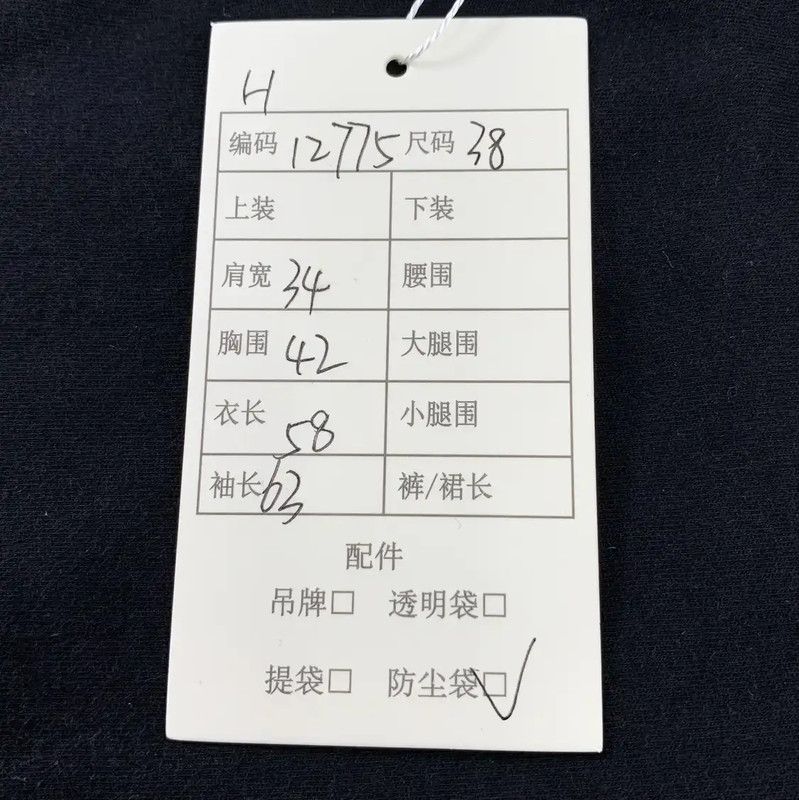 H
编码 12775 尺码 38
上装 下装
肩宽 34 腰围
胸围 42 大腿围
衣长 58 小腿围
袖长 63 裤/裙长
配件
吊牌□ 透明袋□
提袋□ 防尘袋□√